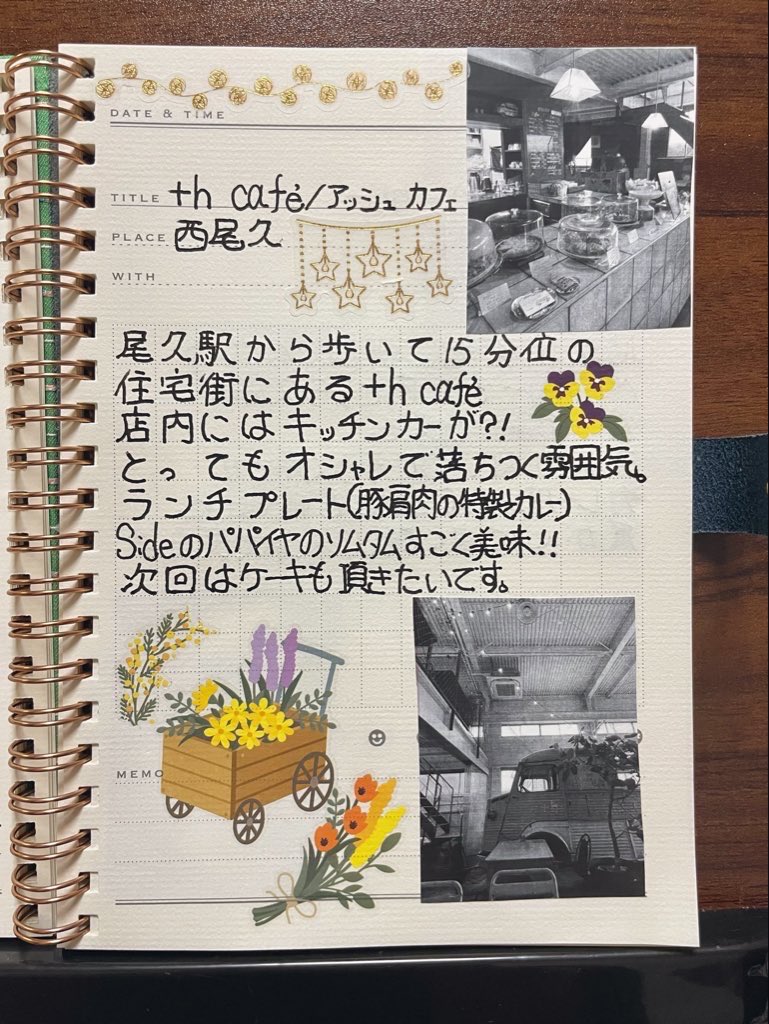 DATE & TIME
TITLE +h café/アッシュ カフェ
PLACE 西尾久
WITH
尾久駅から歩いて15分位の
住宅街にある+h café
店内にはキッチンカーが?!
とってもオシャレで落ちつく雰囲気。
ランチプレート(豚肩肉の特製カレー)
Sideのパパイヤのソムタムすごく美味!!
次回はケーキも頂きたいです。
MEMO